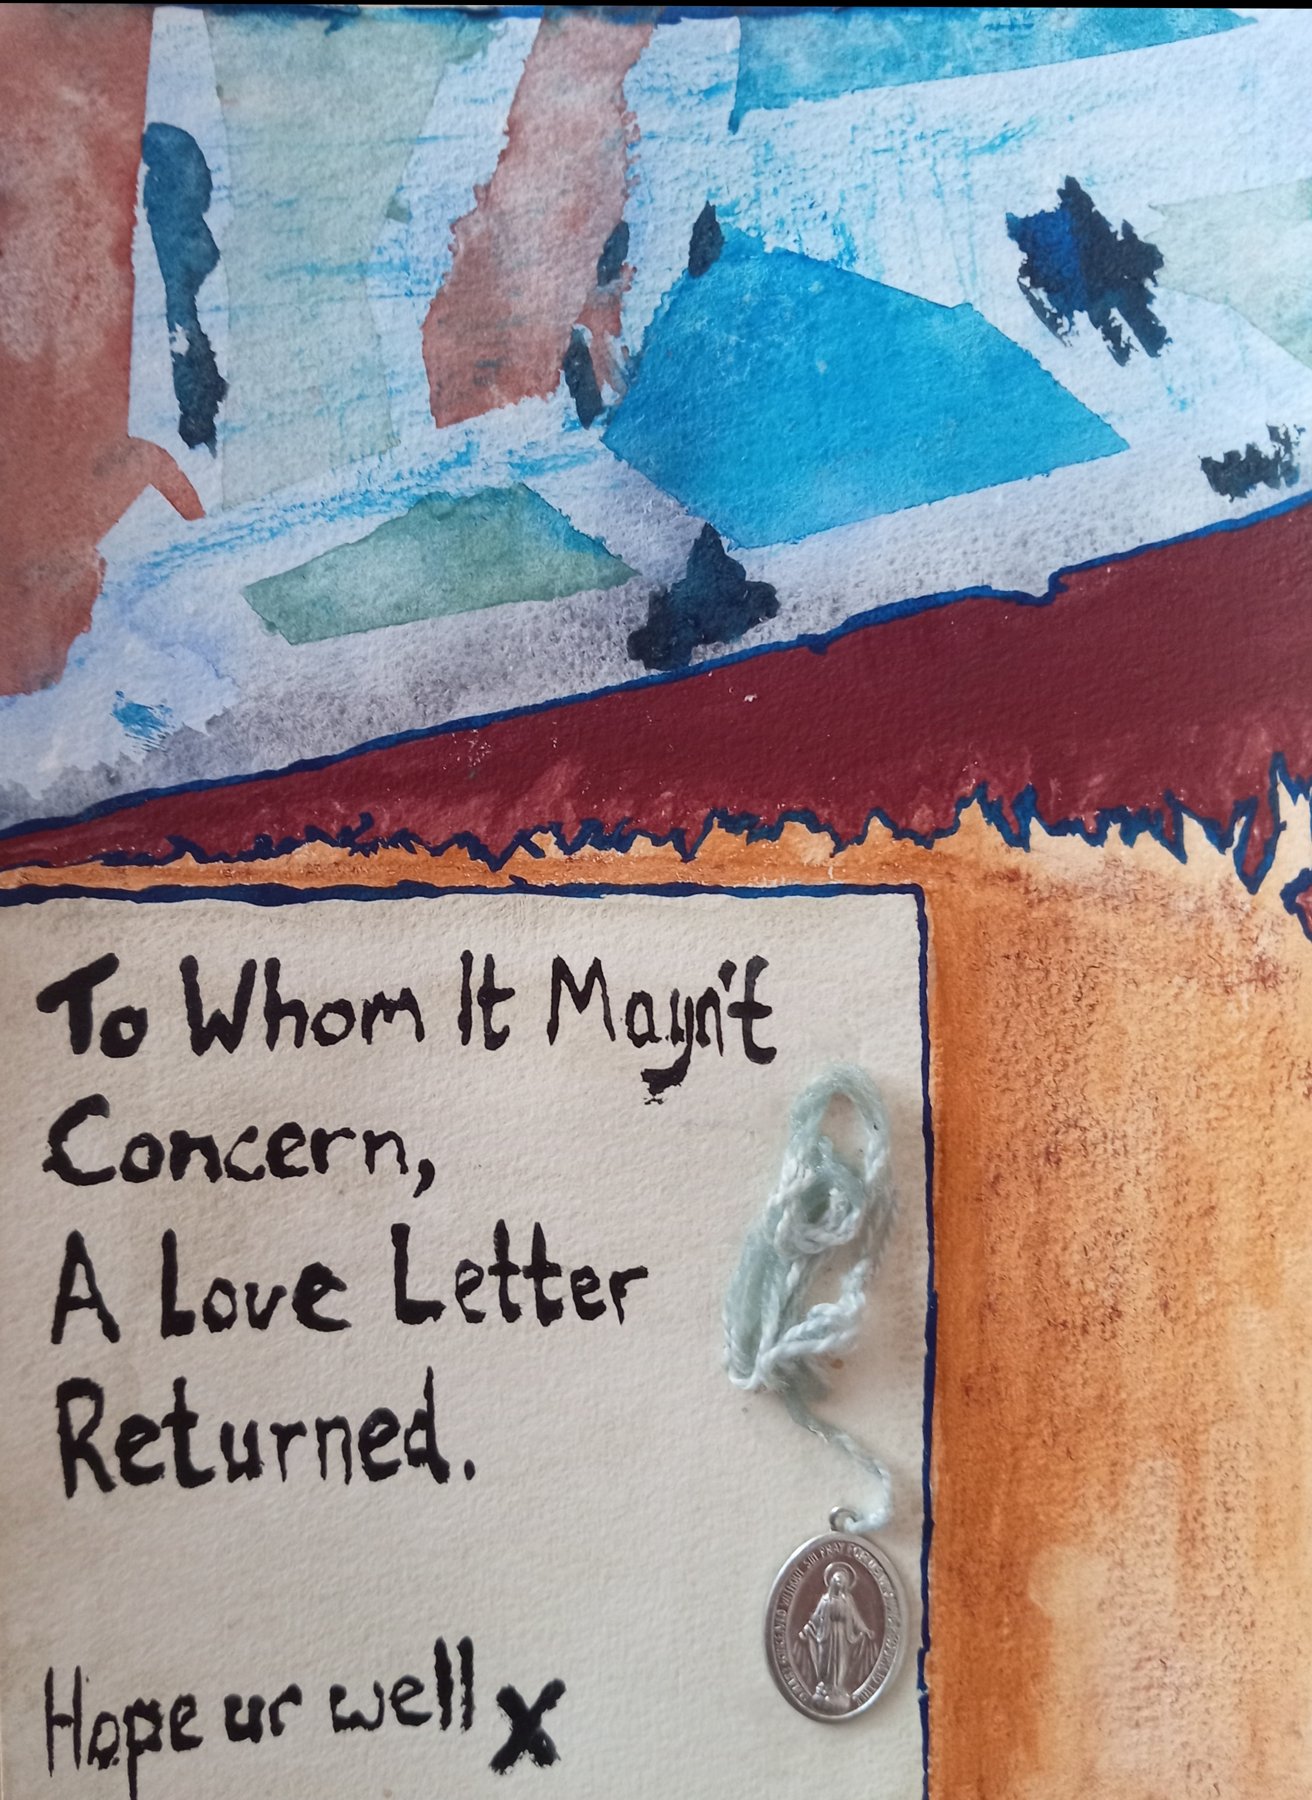 To Whom It Mayn't
Concern,
A Love Letter
Returned.
Hope ur well x
PRAY FOR